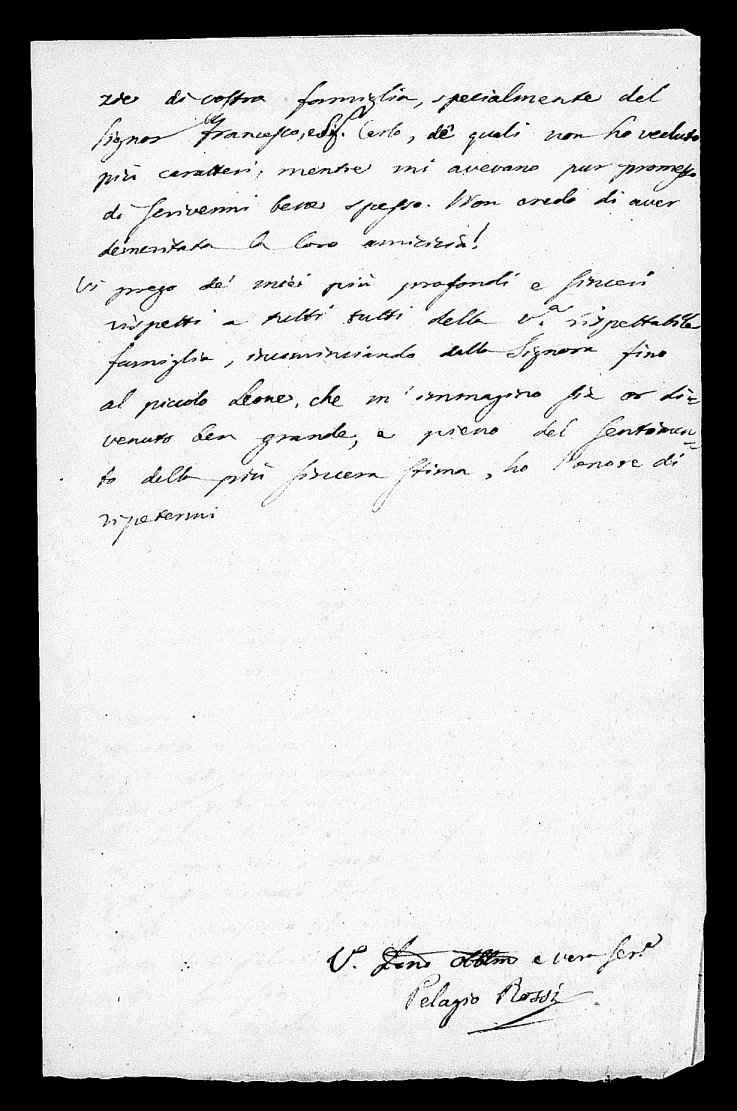 zie di vostra famiglia, specialmente del
Signor Francesco, e Sig.r Carlo, de' quali non ho veduto
più caratteri, mentre mi avevano pur promesso
di scrivermi bene spesso. Non credo di aver
demeritata la loro amicizia!
Vi prego de' miei più profondi e sinceri
rispetti a tutti tutti della V.a rispettabile
famiglia, incominciando dalla Signora fino
al piccolo Leone, che m'immagino sia or di=
venuto ben grande, e pieno del sentimen=
to della più sincera stima, ho l'onore di
ripetermi
V.o e vero ser.e
Pelagio Rossi